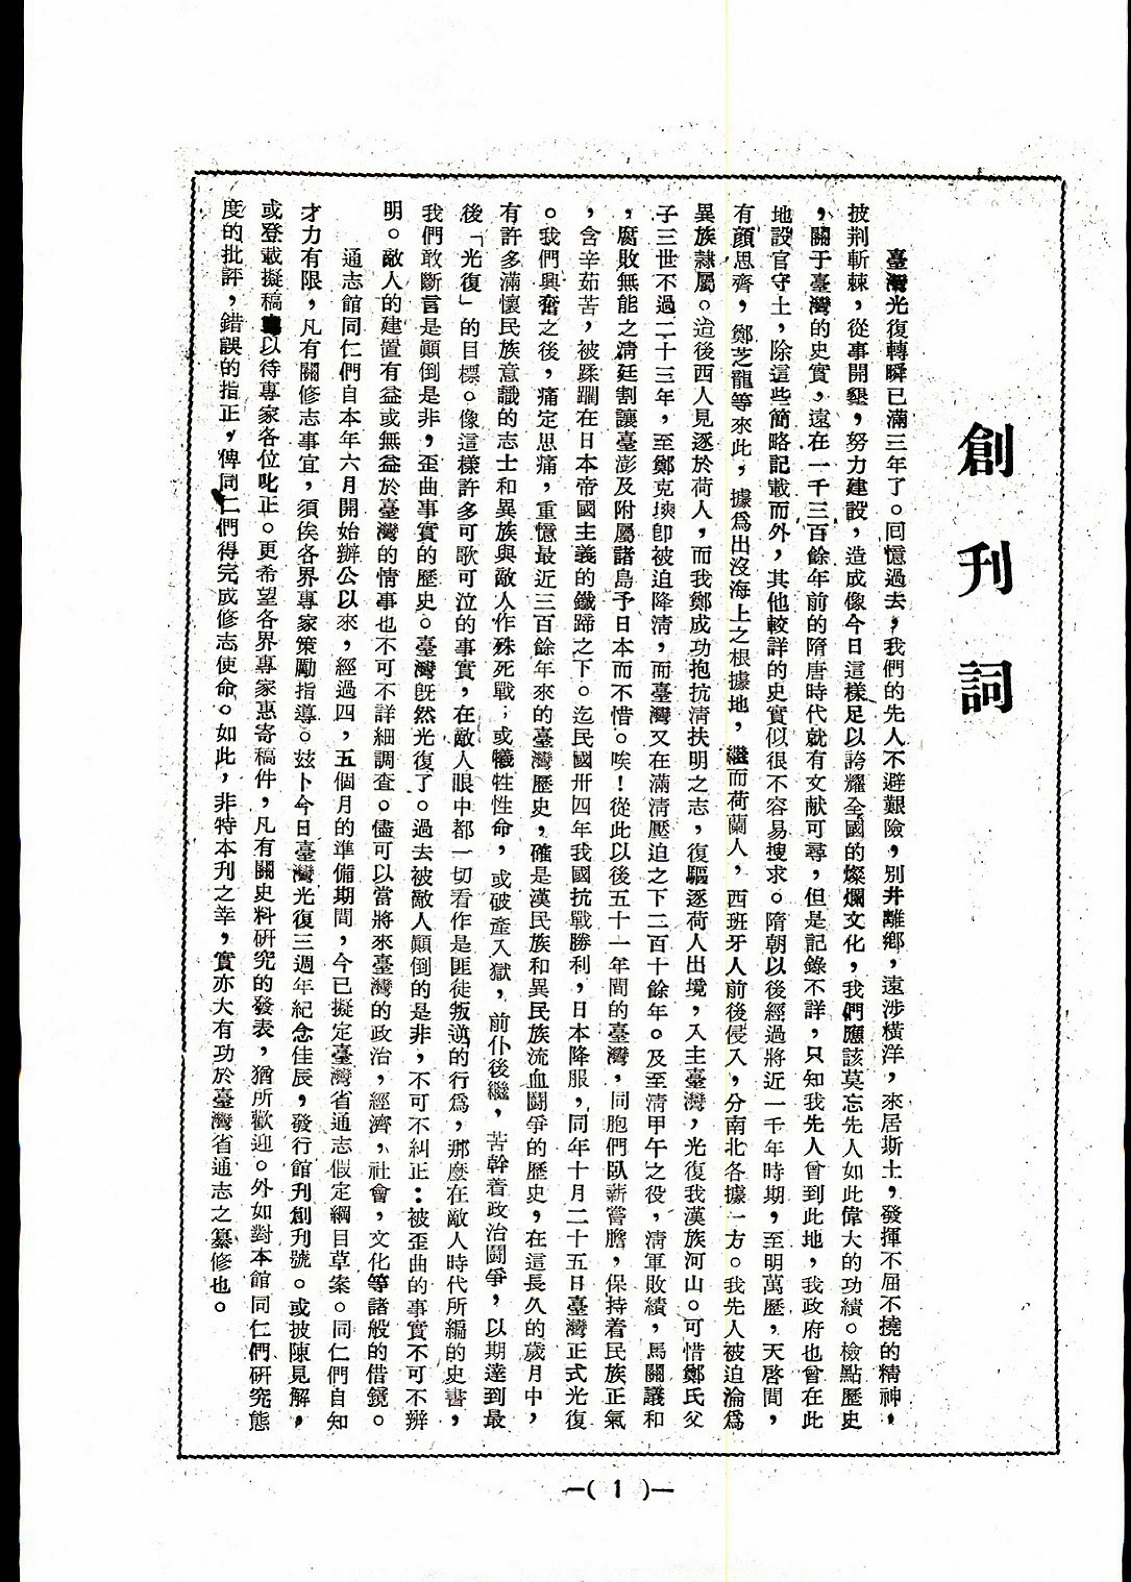 創刊詞
臺灣光復轉瞬已滿三年了。回憶過去，我們的先人不避艱險，別井離鄉，遠涉橫洋，來居斯土，發揮不屈不撓的精神，
披荆斬棘，從事開墾，努力建設，造成像今日這樣足以誇耀全國的燦爛文化，我們應該莫忘先人如此偉大的功績。檢點歷史
，關于臺灣的史實，遠在一千三百餘年前的隋唐時代就有文献可尋，但是記錄不詳，只知我先人曾到此地，我政府也曾在此
地設官守土，除這些簡略記載而外，其他較詳的史實似很不容易搜求。隋朝以後經過將近一千年時期，至明萬歷，天啓間，
有顏思齊，鄭芝龍等來此，據爲出沒海上之根據地，繼而荷蘭人，西班牙人前後侵入，分南北各據一方。我先人被迫淪爲
異族隷屬。迨後西人見逐於荷人，而我鄭成功抱抗清扶明之志，復驅逐荷人出境，入主臺灣，光復我漢族河山。可惜鄭氏父
子三世不過二十三年，至鄭克塽卽被迫降清，而臺灣又在滿清壓迫之下二百十餘年。及至清甲午之役，清軍敗績，馬關議和
，腐敗無能之清廷割讓臺澎及附屬諸島予日本而不惜。唉！從此以後五十一年間的臺灣，同胞們臥薪嘗膽，保持着民族正氣
，含辛茹苦，被蹂躪在日本帝國主義的鐵蹄之下。迄民國卅四年我國抗戰勝利，日本降服，同年十月二十五日臺灣正式光復
。我們興奮之後，痛定思痛，重憶最近三百餘年來的臺灣歷史，確是漢民族和異民族流血鬪爭的歷史，在這長久的歲月中，
有許多滿懷民族意識的志士和異族與敵人作殊死戰；或犧牲性命，或破產入獄，前仆後繼，苦幹着政治鬪爭，以期達到最
後「光復」的目標。像這樣許多可歌可泣的事實，在敵人眼中都一切看作是匪徒叛逆的行爲，那麽在敵人時代所編的史書，
我們敢斷言是顚倒是非，歪曲事實的歷史。臺灣旣然光復了。過去被敵人顚倒的是非，不可不糾正：被歪曲的事實不可不辨
明。敵人的建置有益或無益於臺灣的情事也不可不詳細調查。儘可以當將來臺灣的政治，經濟，社會，文化等諸般的借鏡。
通志館同仁們自本年六月開始辦公以來，經過四，五個月的準備期間，今已擬定臺灣省通志假定綱目草案。同仁們自知
才力有限，凡有關修志事宜，須俟各界專家策勵指導。玆卜今日臺灣光復三週年紀念佳辰，發行館刊創刊號。或披陳見解，
或登載擬稿以待專家各位叱正。更希望各界專家惠寄稿件，凡有關史料研究的發表，猶所歡迎。外如對本館同仁們研究態
度的批評，錯誤的指正，俾同仁們得完成修志使命。如此，非特本刊之幸，實亦大有功於臺灣省通志之纂修也。
—( 1 )—